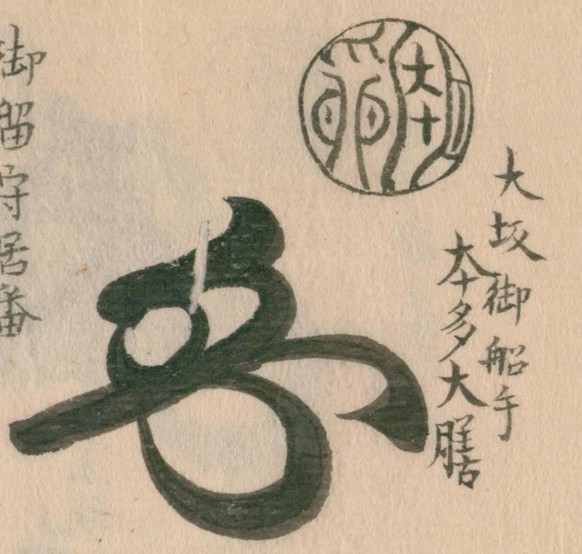 大坂御船手
本多大膳
御留守居番